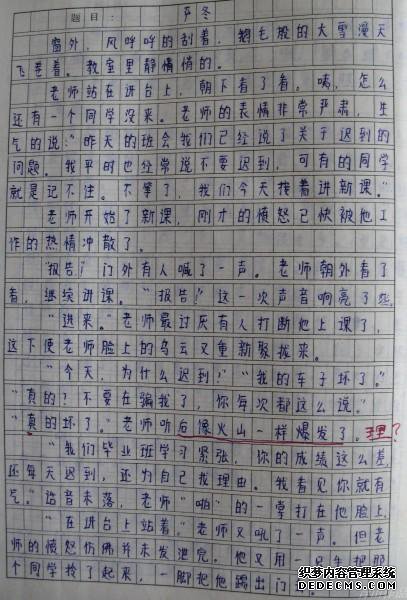 题目： 严冬
窗外，风呼呼的刮着，鹅毛般的大雪漫天
飞卷着。教室里静悄悄的。
老师站在讲台上，朝下看了看。咦，怎么
还有一个同学没来。老师的表情非常严肃，生
气的说：“昨天的班会我们已经说了关于迟到的
问题。我平时也经常说不要迟到，可有的同学
就是记不住。不等了，我们今天接着讲新课。”
老师开始了新课，刚才的愤怒已快被他工
作的热情冲散了。
“报告！”门外有人喊了一声。老师朝外看了
看，继续讲课。“报告！”这一次声音响亮了些。
“进来。”老师最讨厌有人打断他上课了，
这下使老师脸上的乌云又重新聚拢来。
“今天，为什么迟到？”“我的车子坏了。”
“真的？不要在骗我了，你每次都这么说。”
“真的坏了。”老师听后像火山一样爆发了。理？
“我们毕业班学习紧张，你的成绩这么差，
还每天迟到，还为自己找理由。我看见你就有
气。”话音未落，老师“啪”的一掌打在他脸上。
“在讲台上站着。”老师又吼了一声。但老
师的愤怒仿佛并未发泄完。他又用一只手把那
个同学拎了起来，一脚把他踢出门
织梦内容管理系统
DEDECMS.COM